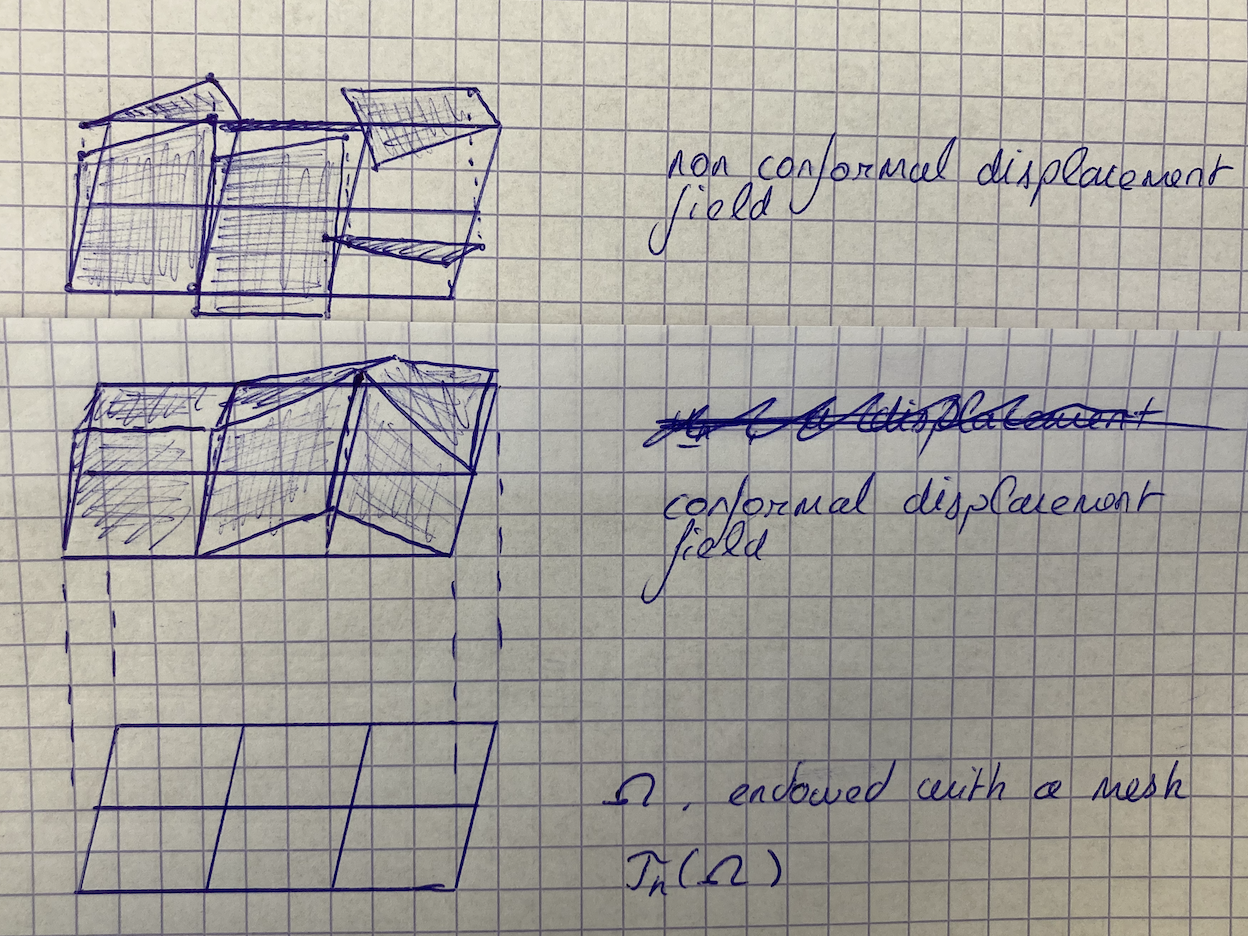 non conformal displacement
field
displacement
conformal displacement
field
Ω, endowed with a mesh
𝒯ₕ(Ω)